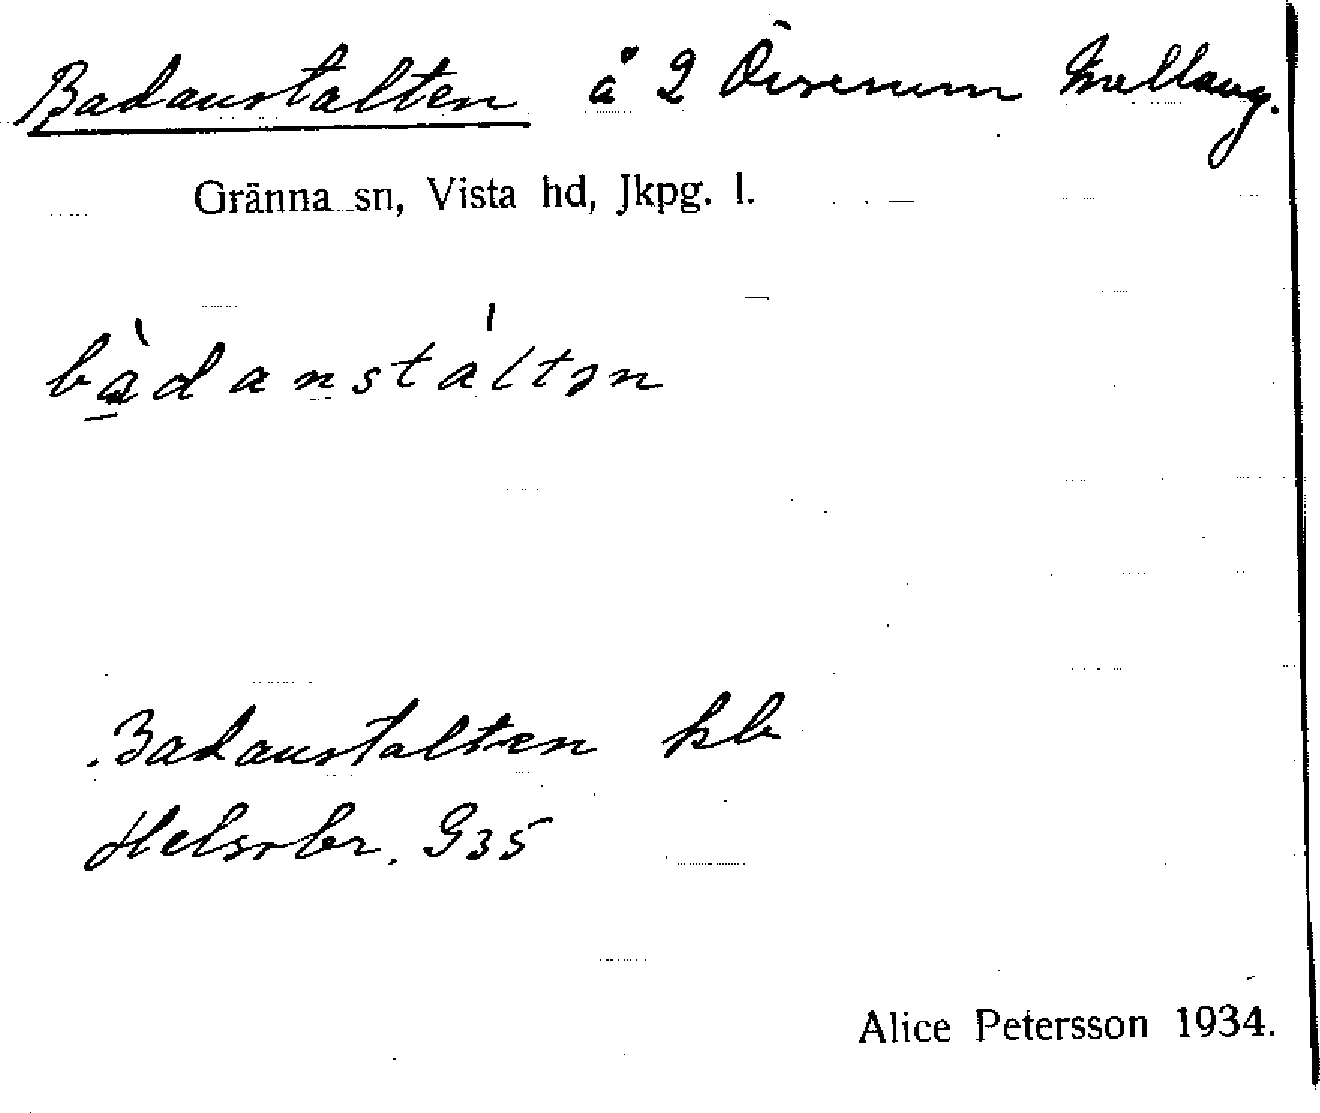 Badanstalten å 2 Öiserum Mellang.
Gränna sn, Vista hd, Jkpg. l.
bàdanstáltən
Badanstalten kb
Helsobr. G35
Alice Petersson 1934.